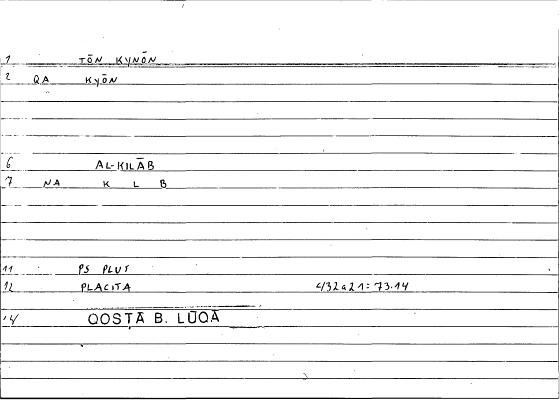 1 TŌN KYNŌN
2 QA KYŌN
6 AL-KILĀB
7 NA K L B
11 PS PLUT
12 PLACITA 432a21:73.14
14 QOSṬĀ B. LŪQĀ